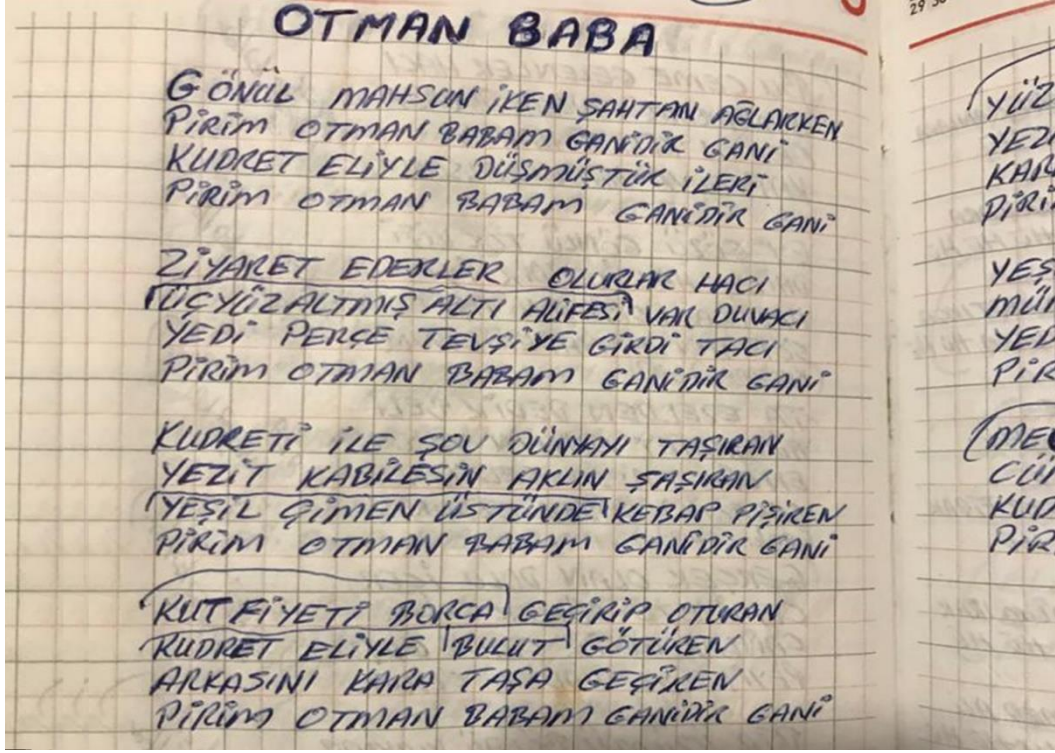 29 30
OTMAN BABA
GÖNÜL MAHSUN İKEN ŞAHTAN AĞLARKEN
PİRİM OTMAN BABAM GANİDİR GANİ
KUDRET ELİYLE DÜŞMÜŞTÜK İLERİ
PİRİM OTMAN BABAM GANİDİR GANİ
ZİYARET EDERLER OLURLAR HACI
ÜÇYÜZALTMIŞ ALTI ALİFESİ VAR DUVACI
YEDİ PERÇE TEVŞİYE GİRDİ TACI
PİRİM OTMAN BABAM GANİDİR GANİ
KUDRETİ İLE ŞOV DÜNYAYI TAŞIRAN
YEZİT KABİLESİN AKLIN ŞAŞIRAN
YEŞİL ÇİMEN ÜSTÜNDE KEBAP PİŞİREN
PİRİM OTMAN BABAM GANİDİR GANİ
KUTFİYETİ BORCA GEÇİRİP OTURAN
KUDRET ELİYLE BULUT GÖTÜREN
ARKASINI KARA TAŞA GEÇİREN
PİRİM OTMAN BABAM GANİDİR GANİ